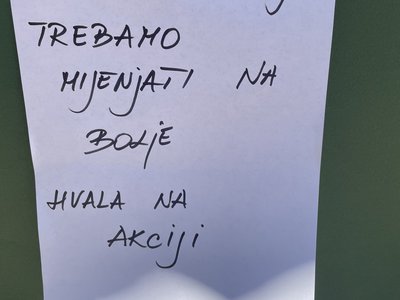 TREBAMO
MIJENJATI NA
BOLJE
HVALA NA
AKCIJI